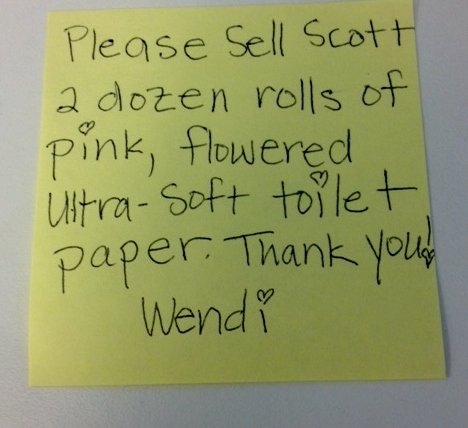 Please Sell Scott
2 dozen rolls of
pink, flowered
Ultra-Soft toilet
paper. Thank you!
Wendi